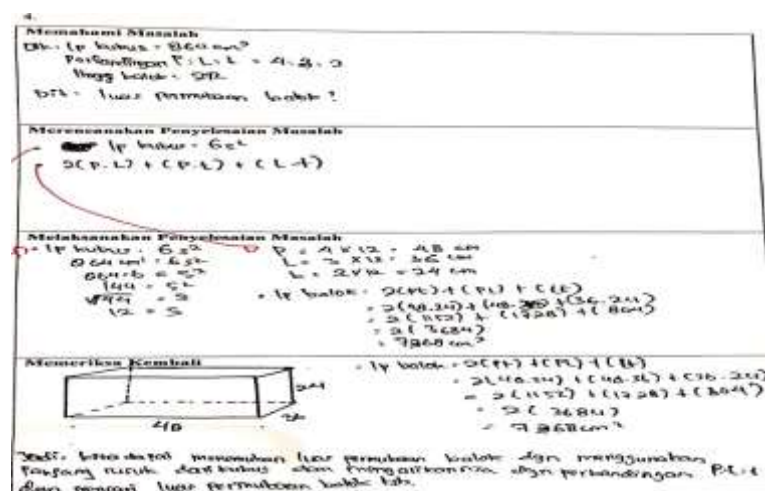 4.
Memahami Masalah
Dik: lp kubus = 864 cm²
Perbandingan P:L:t = 4:3:2
Dit: luas permukaan balok?
Merencanakan Penyelesaian Masalah
lp kubus = 6s²
2(P.L) + (P.t) + (L.t)
Melaksanakan Penyelesaian Masalah
lp kubus = 6s²
864 cm² = 6s²
864:6 = s²
144 = s²
√144 = s
12 = s
P = 4 x 12 = 48 cm
L = 3 x 12 = 36 cm
t = 2 x 12 = 24 cm
lp balok =
= 2(1152) + (1728) + (864)
= 2(3684)
= 7368 cm²
Memeriksa Kembali
24
36
48
lp balok =
= 2(48.24) + (48.36) + (36.24)
= 2(1152) + (1728) + (804)
= 2(3684)
= 7368 cm²
Jadi, kita dapat menemukan luas permukaan balok dgn menggunakan
panjang rusuk dari kubus dan mengalikannya dgn perbandingan P.L.t
dan mencari luas permukaan balok